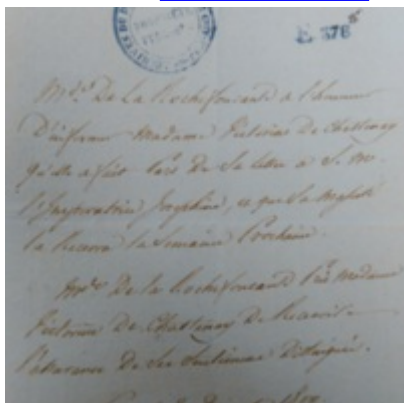 E 376
Mde. De La Rochefoucauld a l'honneur
D'informer Madame Victorine De Chastenay
qu'elle a fait part de Sa lettre a S. M.
l'Imperatrice Josephine, et que Sa Majesté
la Recevra la Semaine Prochaine.
Mde De la Rochefoucauld Prie Madame
Victorine De Chastenay De Recevoir
l'assurance De Ses Sentimens Distingués.